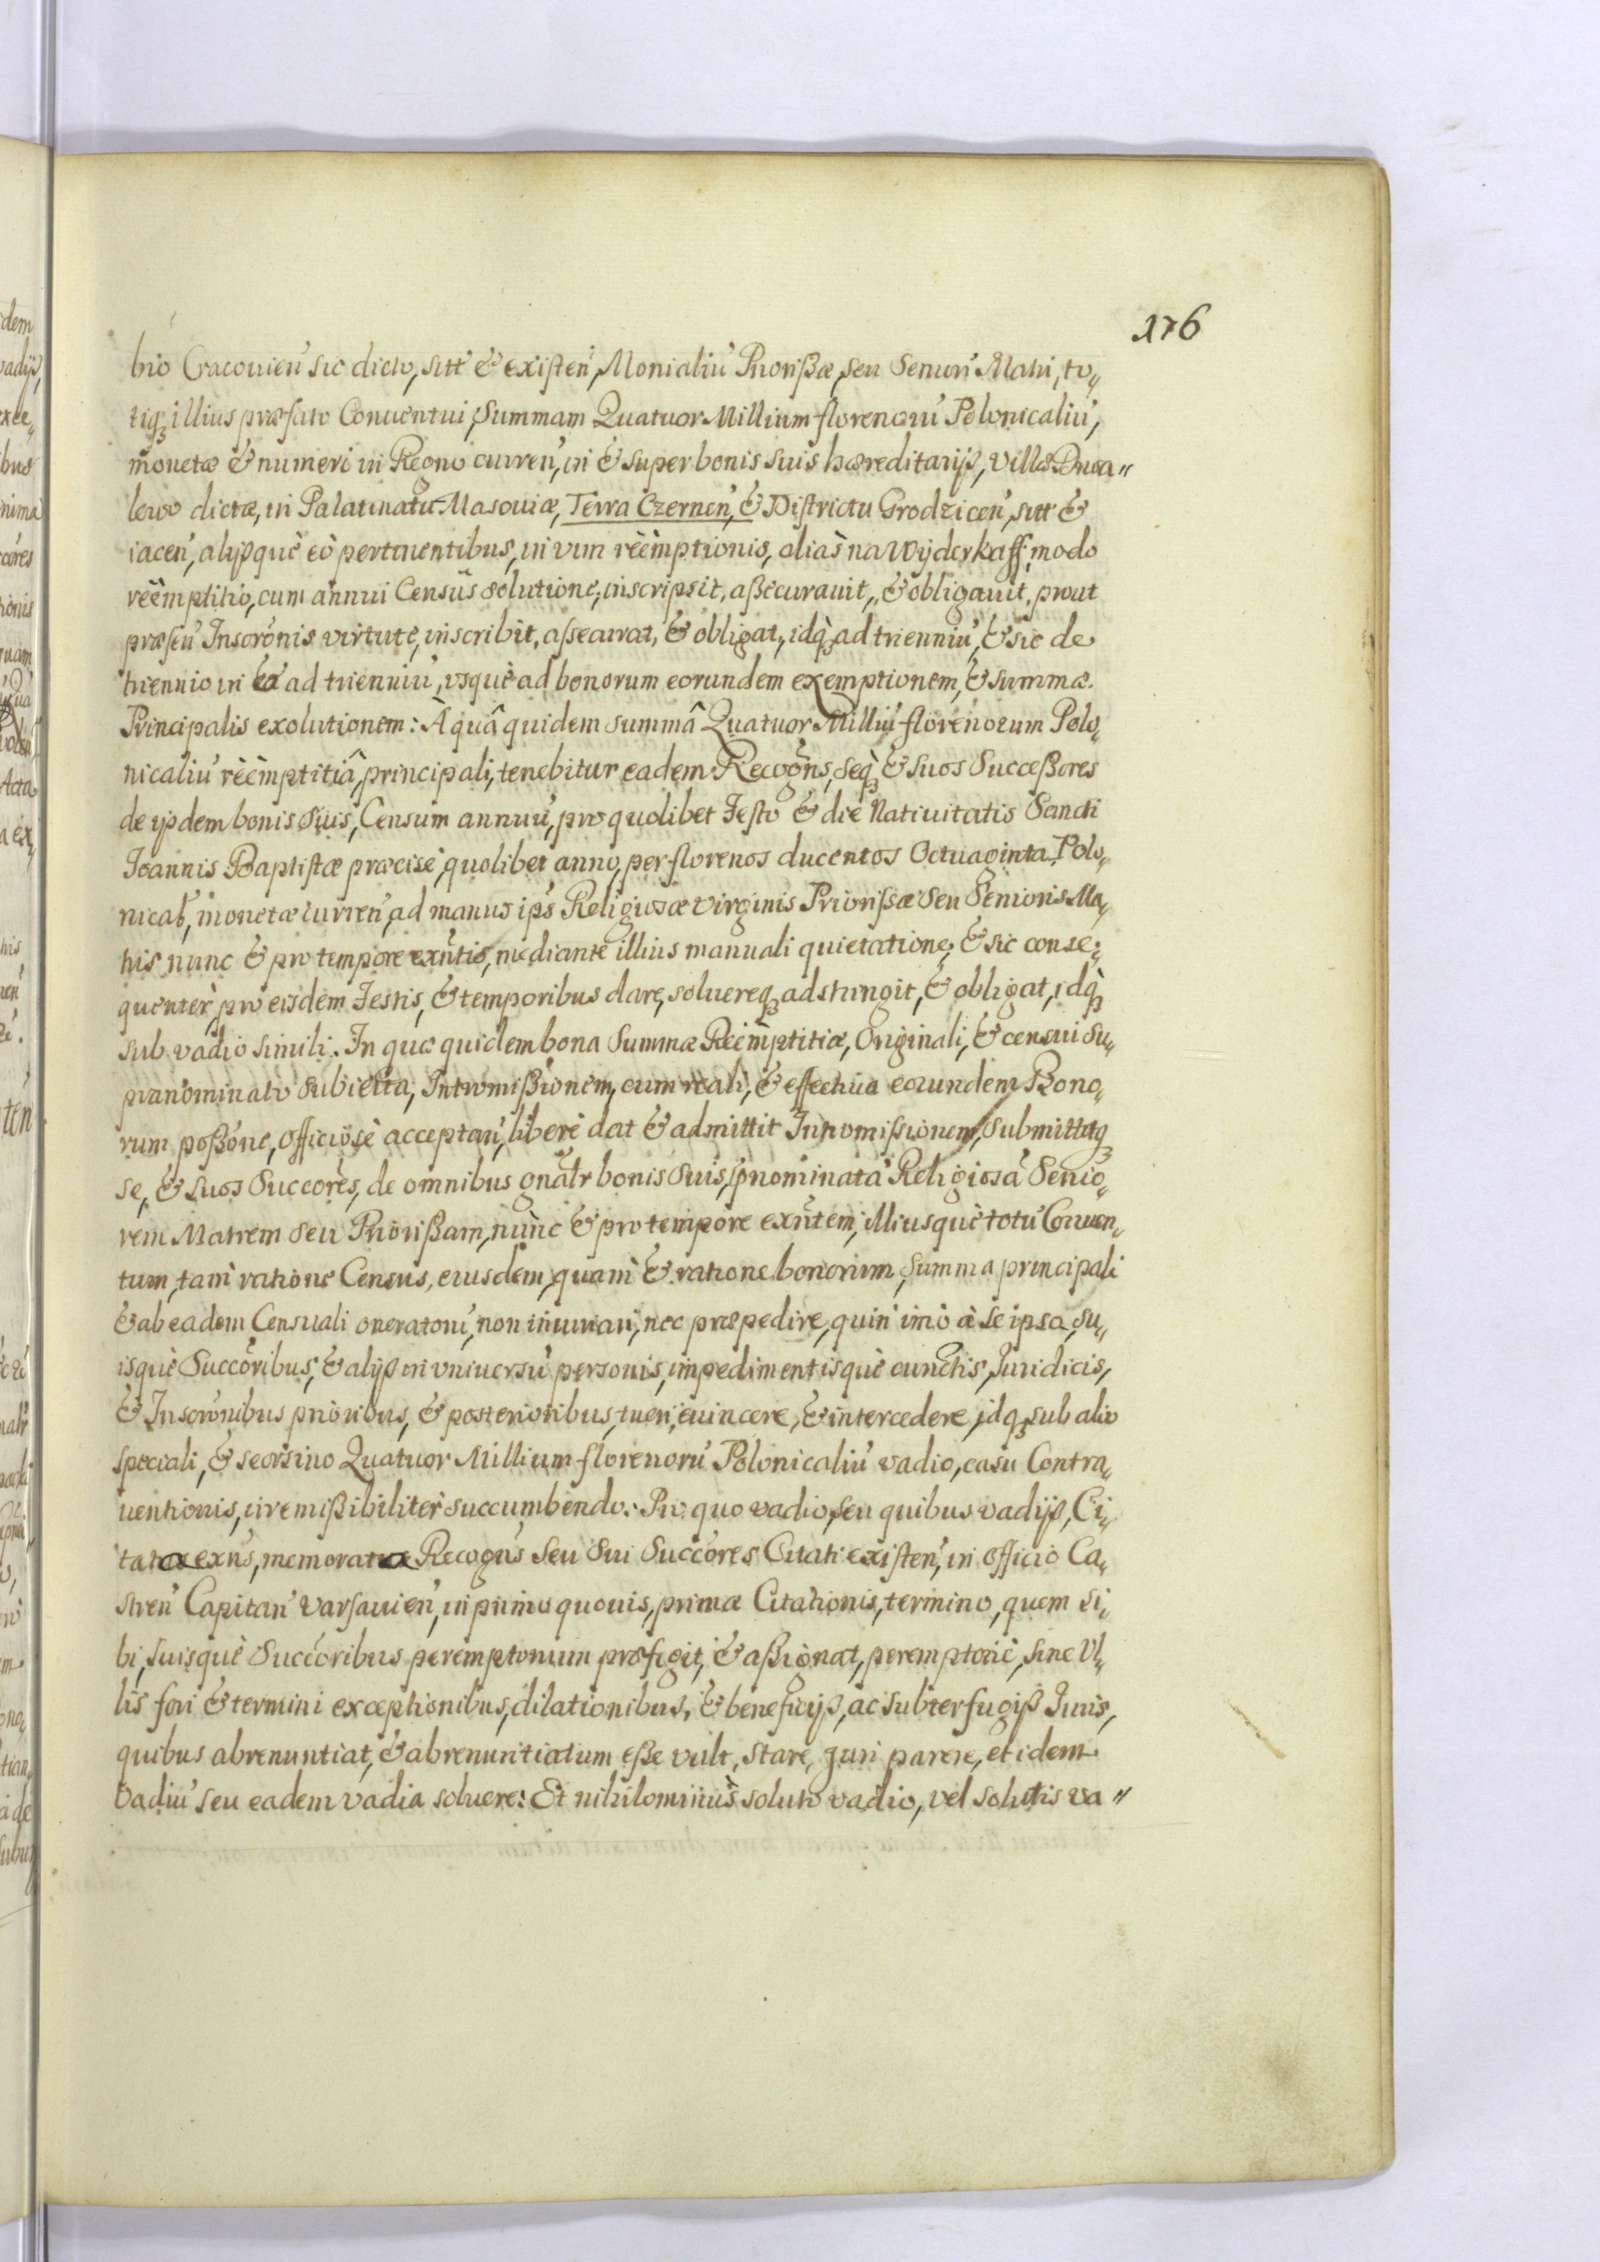 176
brio Cracouien̄ sic dicto, sitt̄ & existen̄, Monialiū Priorißæ, seu Seniori Matri, to„
tiq; illius præfato Conuentui, Summam Quatuor Millium florenorū Polonicaliū,
monetæ & numeri in Regno curren̄, in & super bonis suis hæreditarijs, Villæ
lewo dictæ, in Palatinatu Masouiæ, Terra Czernen̄, & Districtu Grodzicen̄, sitt̄ &
iacen̄, alijsquè eò pertinentibus, in vim rèèmptionis, aliàs na Wÿderkaff, modo
rèèmptitio, cum annui Censùs solutione, inscripsit, aßecurauit, & obligauit, prout
præsen̄ Inscrōnis virtute, inscribit, assecurat, & obligat, idq; ad trienniū, & sic de
triennio in ad trienniū, vsquè ad bonorum eorundem exemptionem, & summæ
Principalis exolutionem: À quâ quidem summâ Quatuor Milliū florenorum Polo„
nicaliū rèèmptitiâ, principali, tenebitur eadem Recogn̄s, seq; & suos Succeßores
de ijsdem bonis suis, Censum annuū, pro quolibet Festo & die Natiuitatis Sancti
Ioannis Baptistæ præcisè, quolibet anno, per florenos ducentos Octuaginta Polo„
nical̄, monetæ curren̄, ad manus ips̄ Religiosæ Virginis Priorißæ seu Senioris Ma„
tris nunc & pro tempore exn̄tis, mediante illius manuali quietatione, & sic conse„
quenter, pro eisdem Festis, & temporibus dare, soluereq; adstringit, & obligat, idq;
sub vadio simili. In quæ quidem bona Summæ Rèèmptitiæ, Originali, & censui su„
pranominato subiecta, Intromißionem, cum reali, & effectiua eorundem Bono„
rum poßōne, officiosè acceptan̄, liberè dat & admittit Intromissionem, submittitq;
se, & suos Succōres, de omnibus gnālr bonis suis, pnominatā Religiosā Senio„
rem Matrem seu Priorißam, nunc & pro tempore exn̄tem, illiusquè totū Conuen„
tum, tam ratione Census, eiusdem, quam & ratione bonorum, summa principali
& ab eadem Censuali oneratorū, non iniuriari, nec præpedire, quin imò à se ipsa, su„
isquè Succōribus, & alijs in vniuersū personis, impedimentisquè cunctis, Iuridicis,
& Inscrōnibus prioribus, & posterioribus, tueri, euincere, & intercedere, idq; sub alio
speciali, & seorsiuo Quatuor Millium florenorū Polonicaliū vadio, casu Contra„
uentionis, irremißibiliter succumbendo: Pro quo vadio, seu quibus vadijs, Ci„
tata exn̄s, memorata Recogn̄s seu sui Succōres Citati existen̄, in officio Ca„
stren̄ Capitan̄ Varsauien̄, in primo quouis, primæ Citationis, termino, quem si„
bi, suisquè Succōribus peremptorium præfigit, & aßignat, peremptoriè, sine Vl„
lis fori & termini exceptionibus, dilationibus, & beneficijs, ac subterfugijs Iuris,
quibus abrenuntiat, & abrenuntiatum eße vult, stare, Juri parere, et idem
Vadiū seu eadem vadia soluere: Et nihilominùs soluto vadio, vel solutis va„